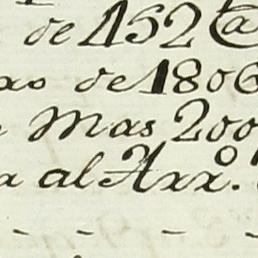 de 152@
ao de 1806
Mas 200
a al Arro.